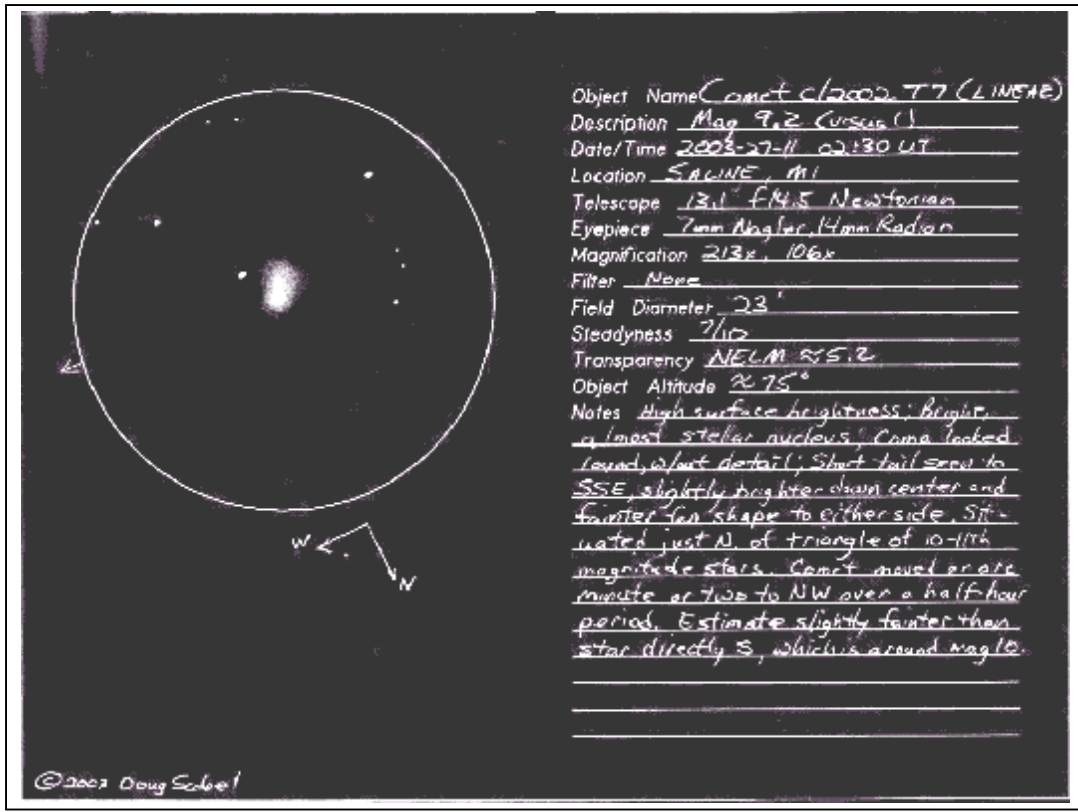 Object Name Comet C/2002 T7 (LINEAR)
Description Mag 9.2
Date/Time 2003-27-11 02:30 UT
Location SALINE, MI
Telescope 13.1" f/4.5 Newtonian
Eyepiece 7mm Nagler, 14mm Radian
Magnification 213x, 106x
Filter None
Field Diameter 23'
Steadyness 7/10
Transparency NELM ≈ 5.2
Object Altitude ≈ 75°
Notes High surface brightness; Bright,
almost stellar nucleus; Coma looked
round, w/out detail; Short tail seen to
SSE, slightly brighter down center and
fainter fan shape to either side. Sit-
uated just N. of triangle of 10-11th
magnitude stars. Comet moved an arc
minute or two to NW over a half-hour
period. Estimate slightly fainter than
star directly S, which is around mag 10.
W
N
Doug Scobel